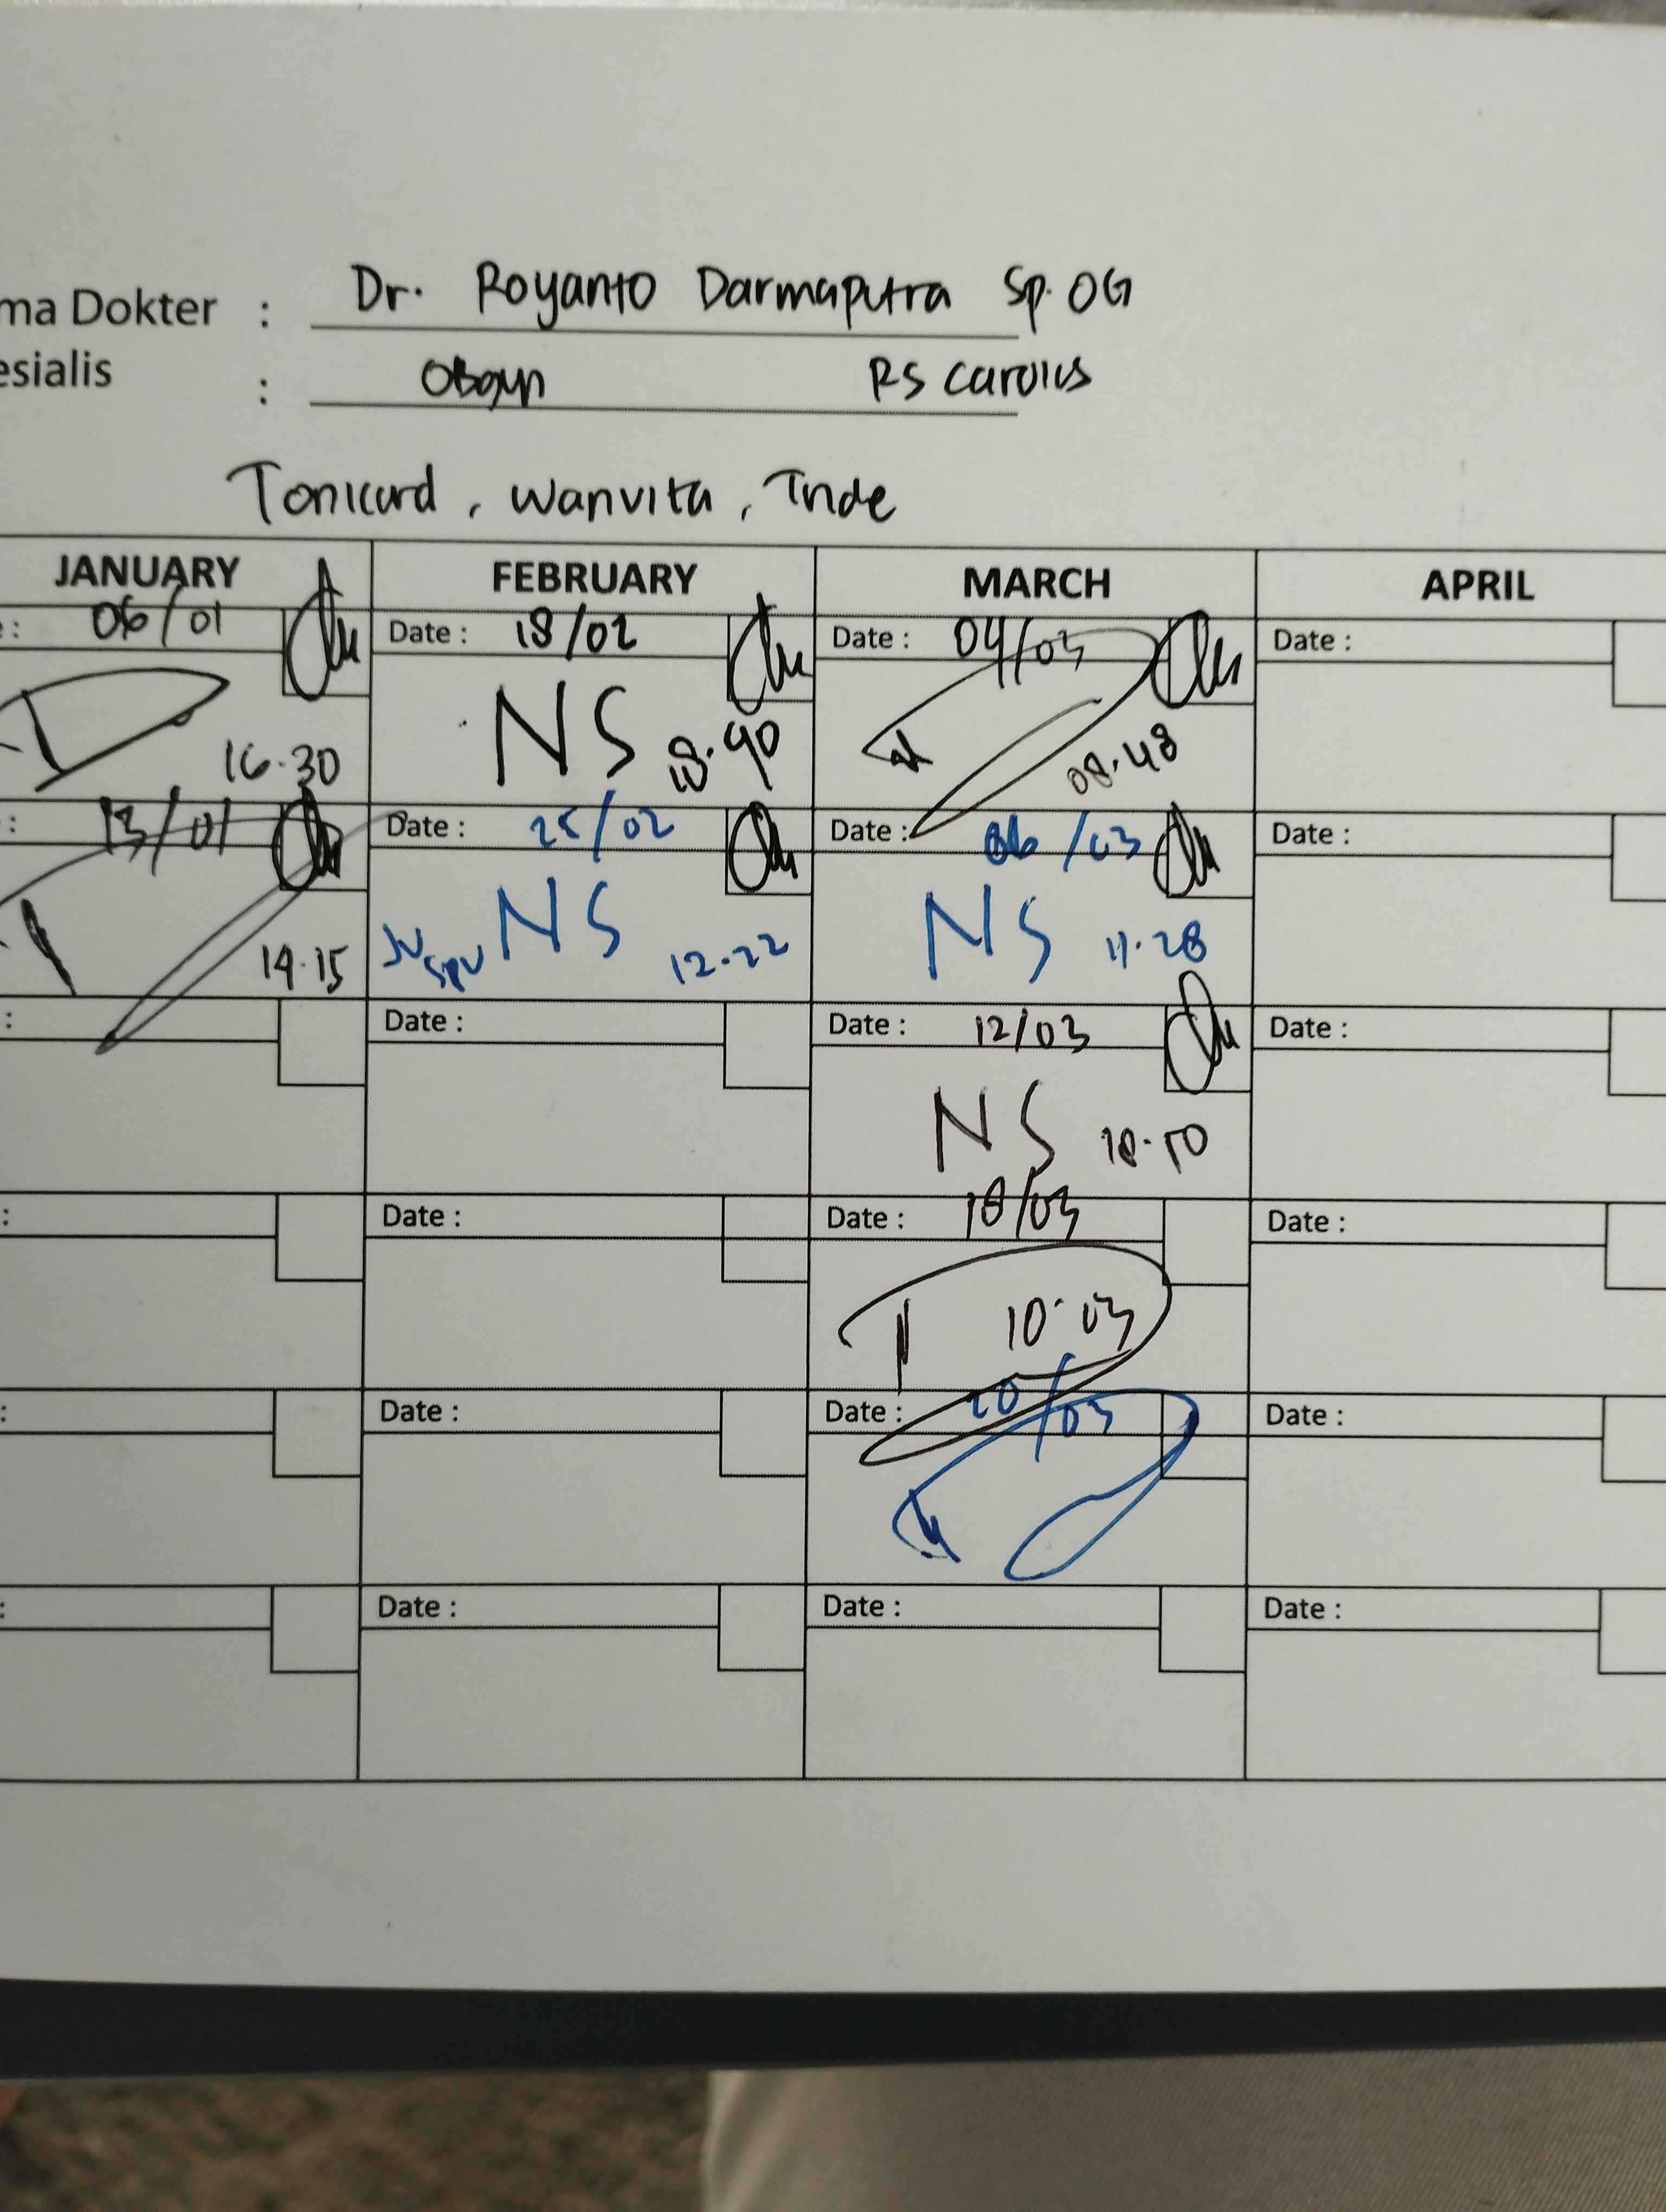 ma Dokter : Dr. Royanto Darmaputra Sp.OG
esialis : Obgyn RS Carolus
Tonicard, Wanvita, Inde
JANUARY FEBRUARY MARCH APRIL
: 06/01 Date : 18/02 Date : 04/03 Date :
16.30 NS 18.40 08.48
: 13/01 Date : 25/02 Date : 06/03 Date :
14.15 JV SPV NS 12.22 NS 11.28
: Date : Date : 12/03 Date :
NS 10.50
: Date : Date : 18/03 Date :
10.03
: Date : Date : 20/03 Date :
: Date : Date : Date :